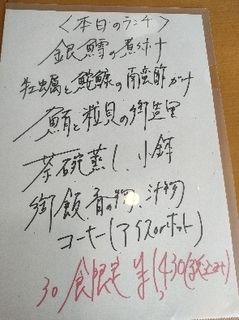 〈本日のランチ〉
銀鱈の煮付け
牡蠣と鮟鱇の南蛮酢がけ
鮪と粒貝の御造里
茶碗蒸し、小鉢
御飯 香の物、汁物
コーヒー(アイスorホット)
30食限定 ¥1,430(税込み)